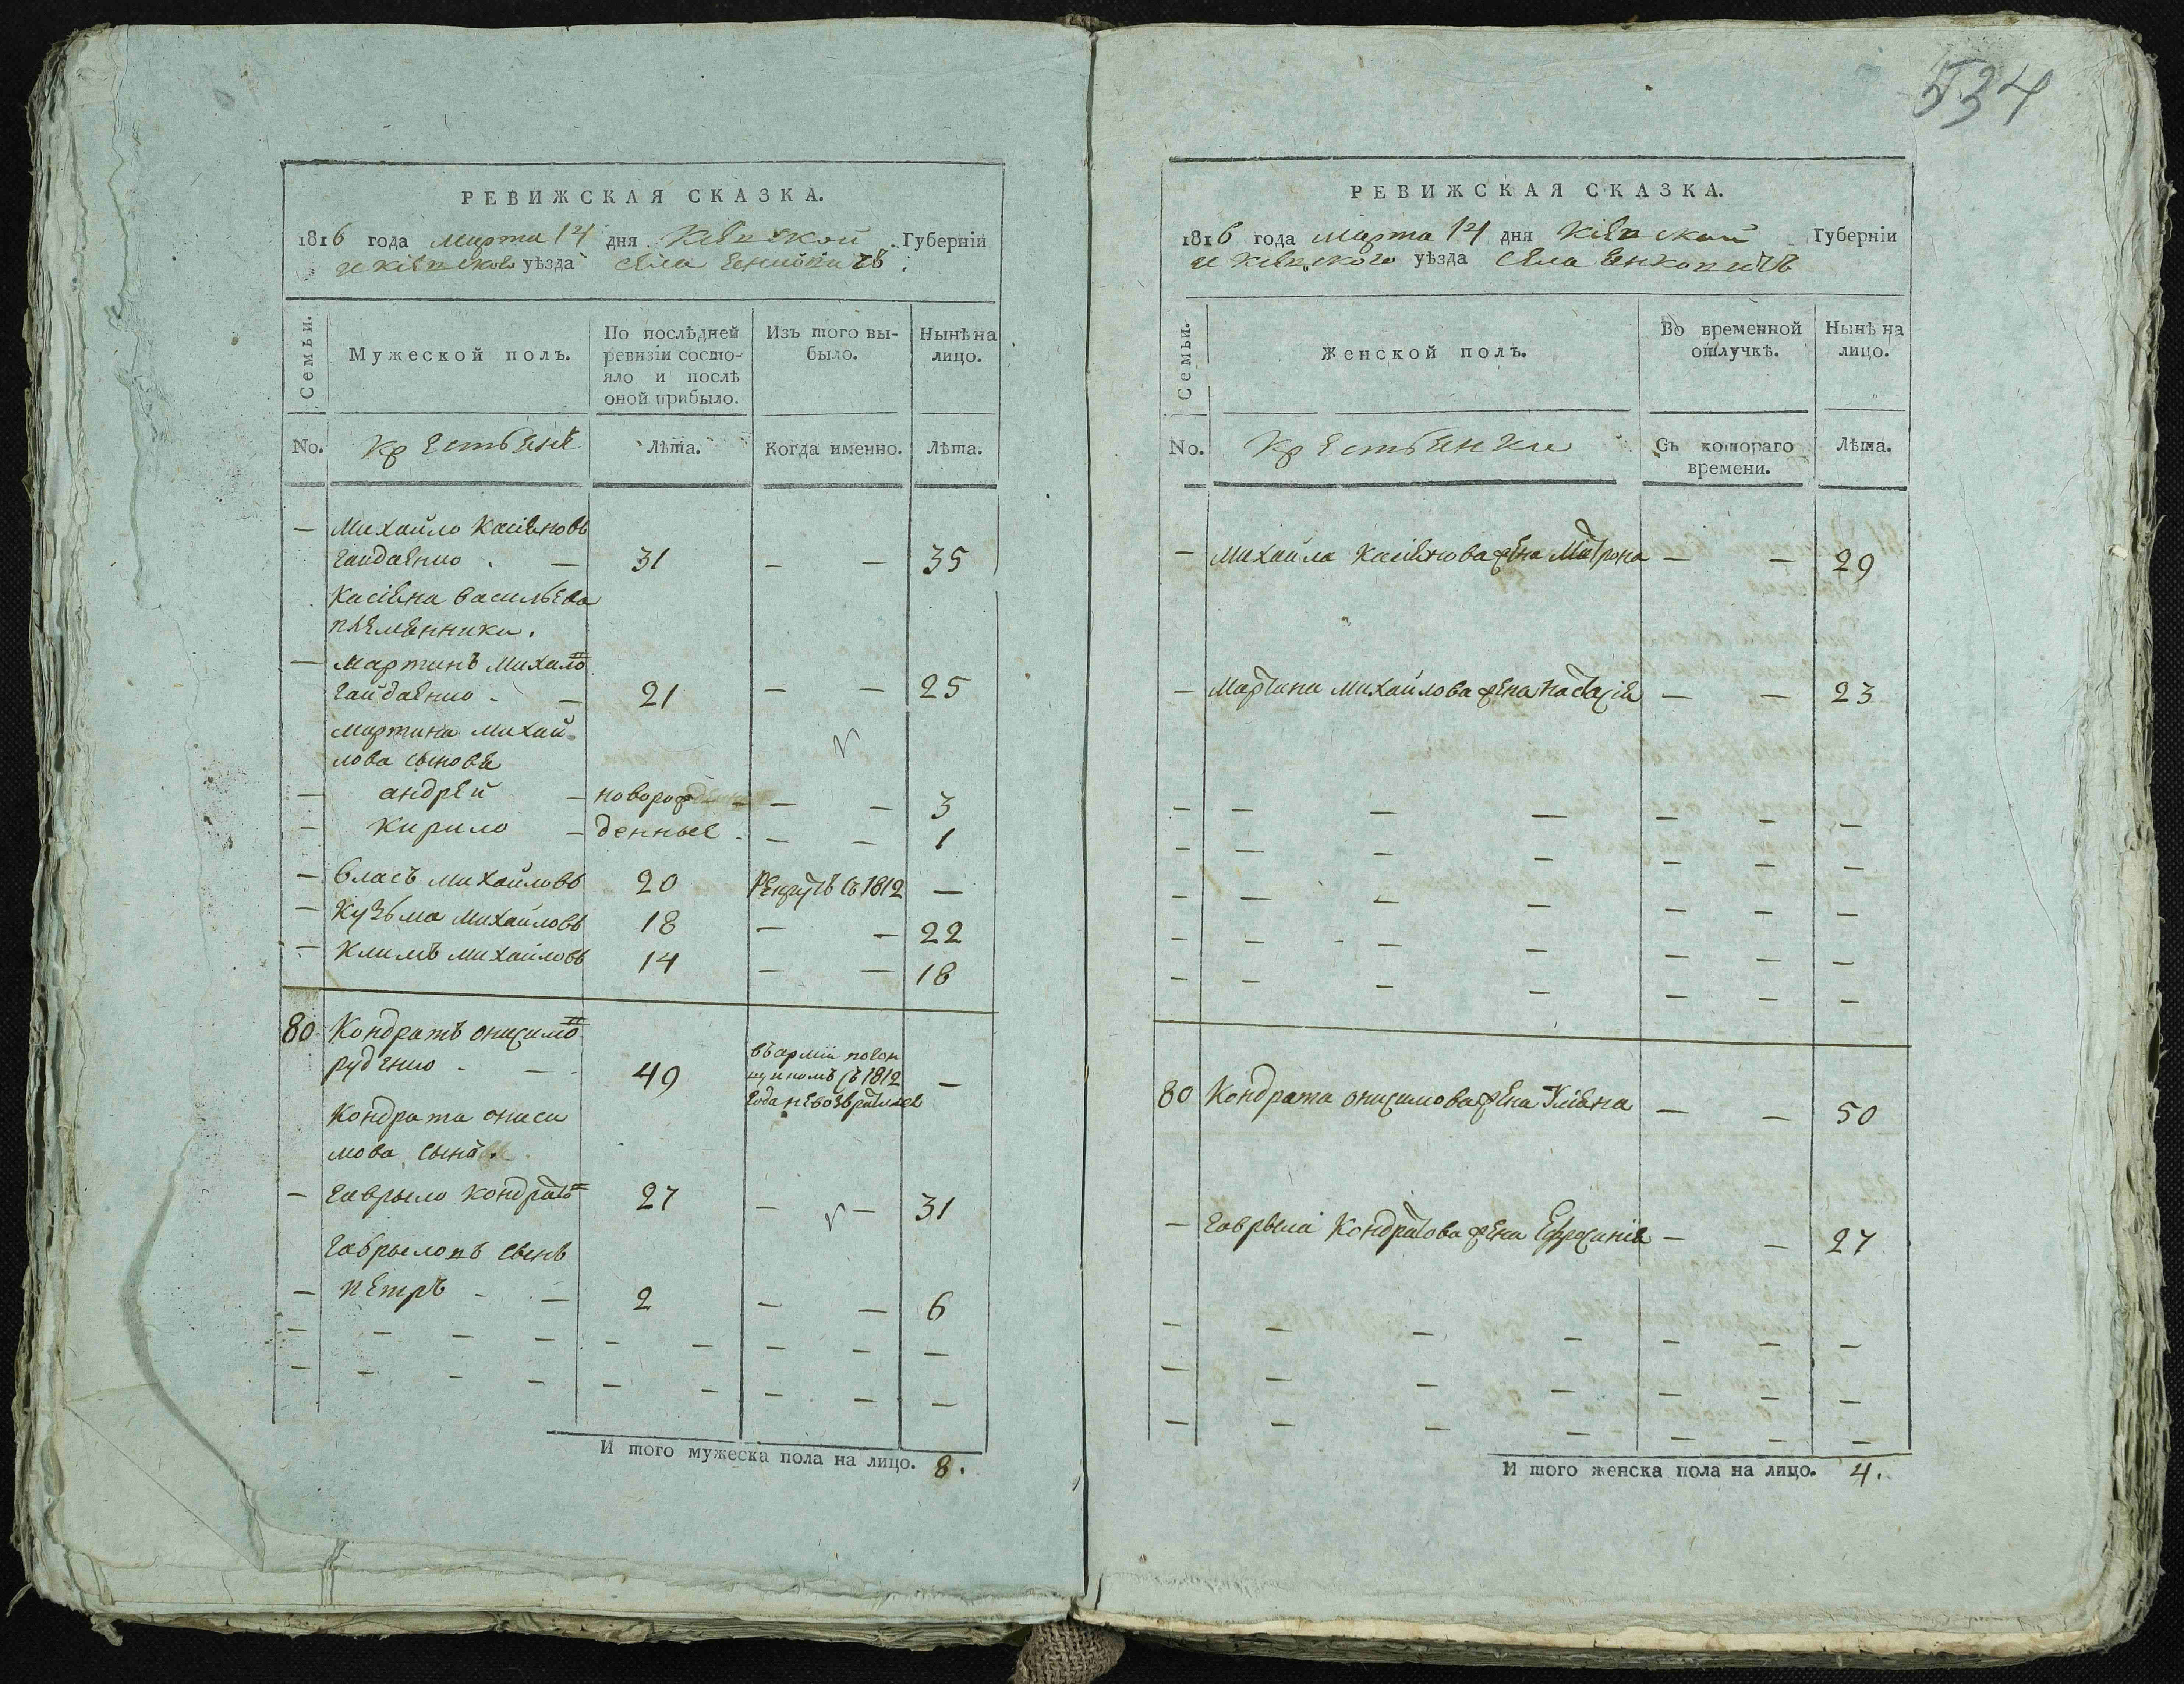 534
РЕВИЖСКАЯ СКАЗКА.
1816 года марта 14 дня Кіевской Губерніи
и Кіевского уѣзда села
Семьи.
Мужеской полъ.
По послѣдней
ревизіи состо-
яло и послѣ
оной прибыло.
Изъ того вы-
было.
Нынѣ на
лицо.
No. Крестьяне Лѣта. Когда именно. Лѣта.
— Михайло Касіяновъ
Гайдаенко . — 31 — — 35
Касіяна Васильева
племянники.
— Мартинъ Михайло
Гайдаенко - — 21 — — 25
Мартина Михай
лова сыновья
— Андрей — новорож — — 3
— Кирило — денные - — — 1
— Власъ Михайловъ 20 Рекрутъ съ 1812 —
— Кузьма Михайловъ 18 — — 22
— Климъ Михайловъ 14 — — 18
80 Кондратъ Онисимо
Руденко - — 49 въ арміи погон
щикомъ съ 1812 —
года не возвратился
КондратаОниси
мова сынъ.
— Гаврыло Кондрато 27 — — 31
Гаврыловъ сынъ
— Петръ - — 2 — — 6
И того мужеска пола на лицо. 8.
РЕВИЖСКАЯ СКАЗКА.
1816 года марта 14 дня Кіевской Губерніи
и Кіевского уѣзда села
Семьи.
Женской полъ.
Во временной
отлучкѣ.
Нынѣ на
лицо.
No. Крестьянки Съ котораго
времени. Лѣта.
— Михайла Касіянова жена Матрона — — 29
— Мартина Михайлова жена Настасія — — 23
80 Кондрата Онисимова жена Уліяна — — 50
— Гаврыла Кондратова жена Ефросинія — — 27
И того женска пола на лицо. 4.